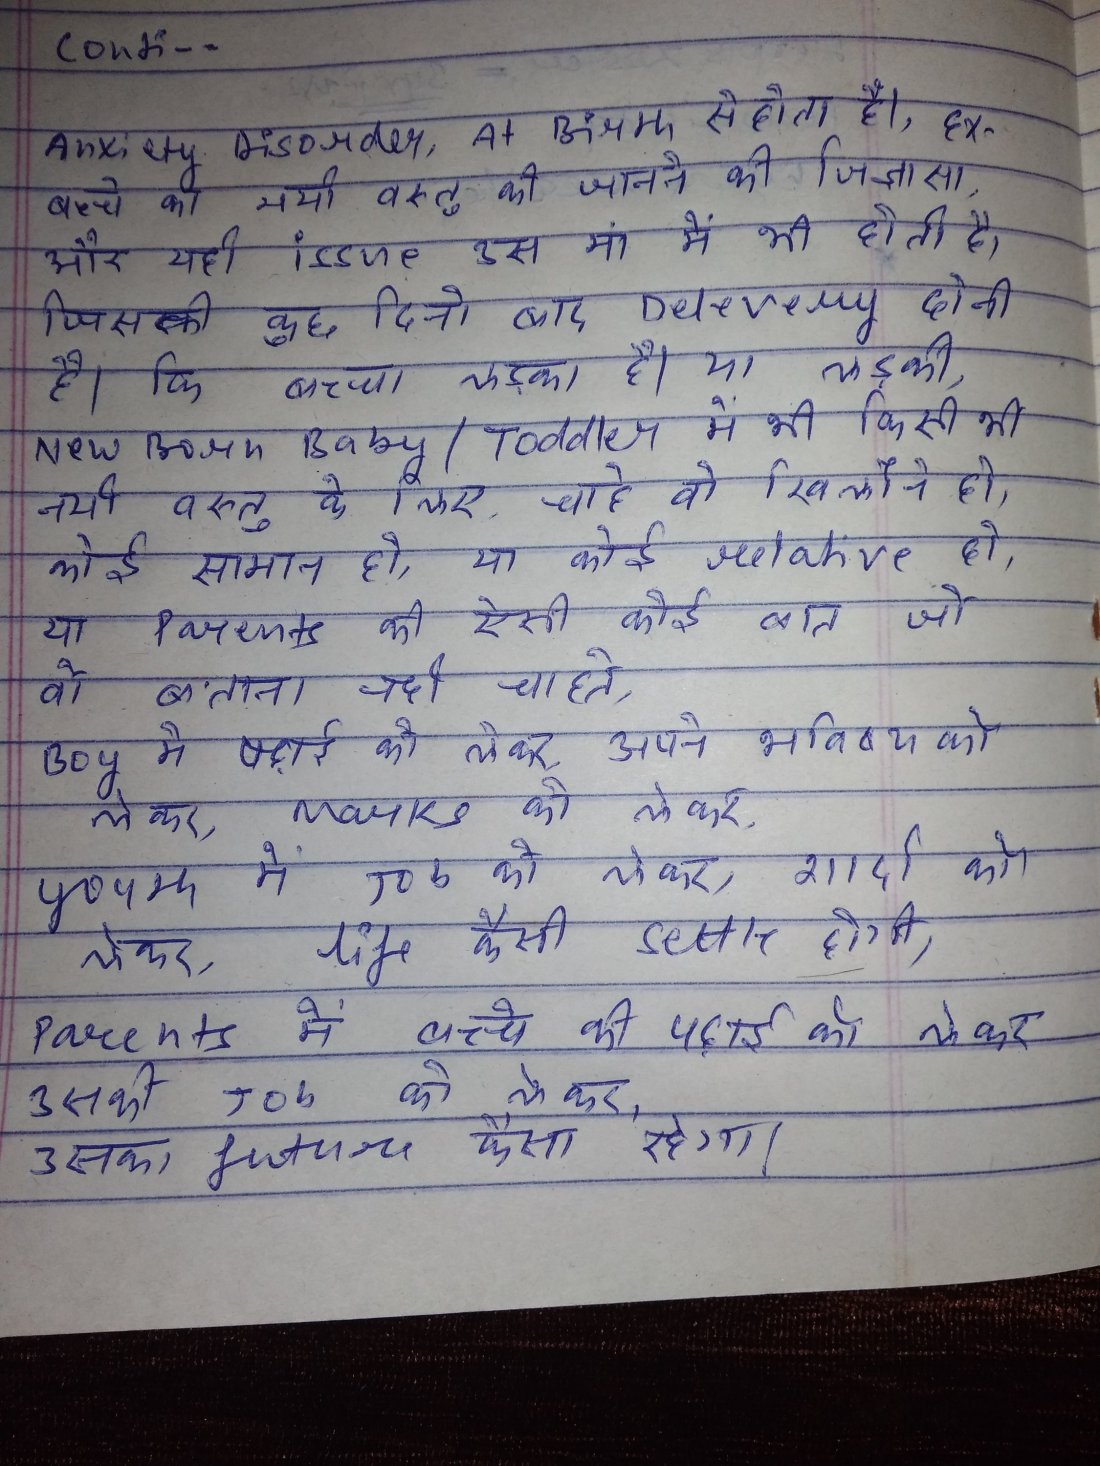 Conti--
Anxiety Disorder, At Birth से होता है।, Ex-
बच्चे को नयी वस्तु को जानने की जिज्ञासा,
और यही issue उस मां में भी होती है,
जिसकी कुछ दिनो बाद Delevery होनी
है। कि बच्चा लड़का है। या लड़की,
New Born Baby / Toddler में भी किसी भी
नयी वस्तु के लिए, चाहे वो खिलौने हो,
कोई सामान हो, या कोई relative हो,
या Parents की ऐसी कोई बात जो
वो बताना नही चाहते,
Boy मे पढ़ाई को लेकर, अपने भविष्य को
लेकर, Marks को लेकर,
youth में Job को लेकर, शादी को
लेकर, life कैसी settle होगी,
Parents में बच्चे की पढ़ाई को लेकर
उसकी Job को लेकर,
उसका future कैसा रहेगा।